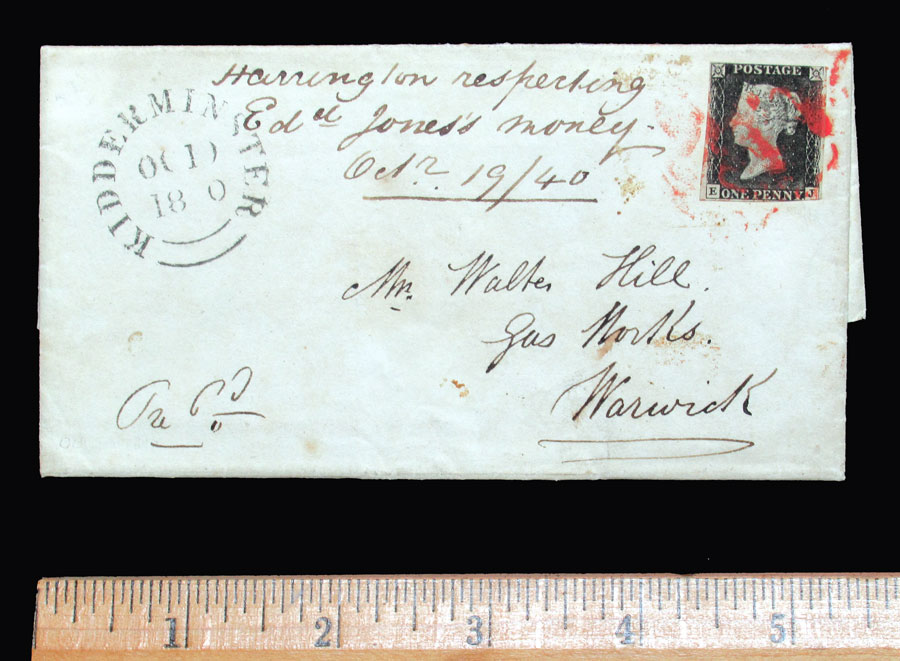 Harrington respecting
Edd Jones's money.
Octr. 19/40
KIDDERMINSTER
OC 1
18 0
POSTAGE
E ONE PENNY J
Mr. Walter Hill.
Gas Works.
Warwick
Pre Pd
1 2 3 4 5